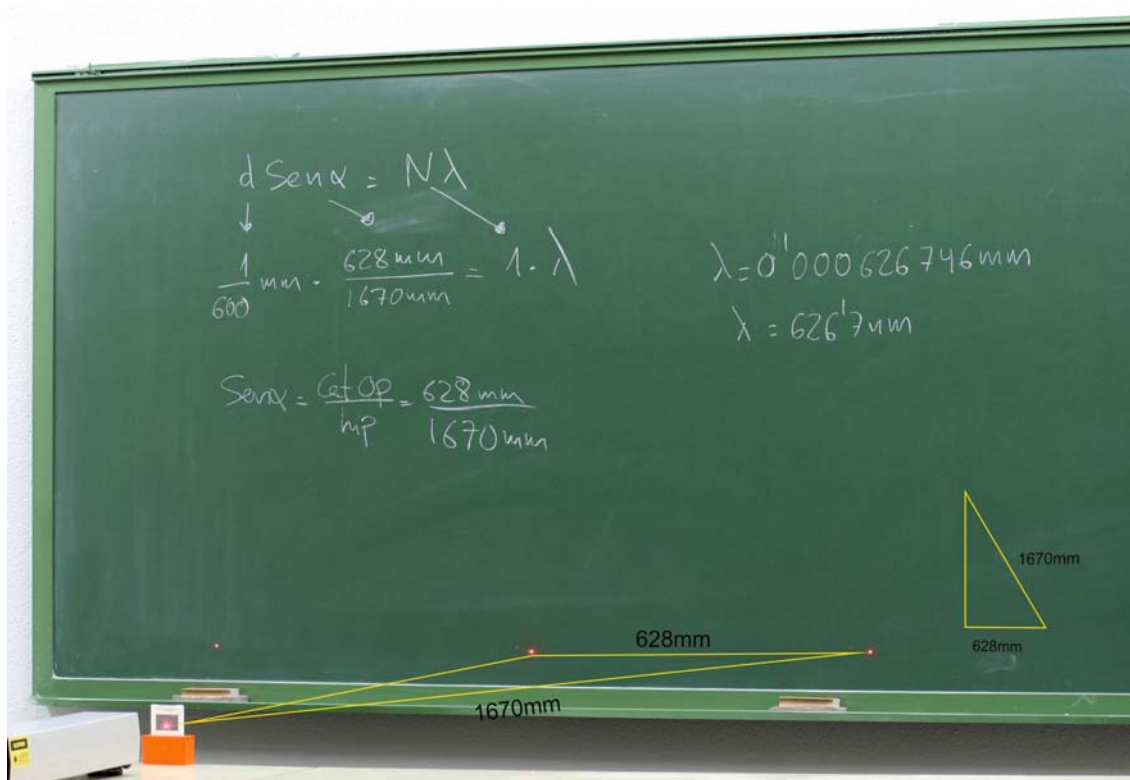 d Senα = Nλ
1/600 mm · 628mm/1670mm = 1 · λ
Senα = Cat Op/hip = 628mm/1670mm
λ = 0'000626746mm
λ = 626'7nm
1670mm
628mm
628mm
1670mm